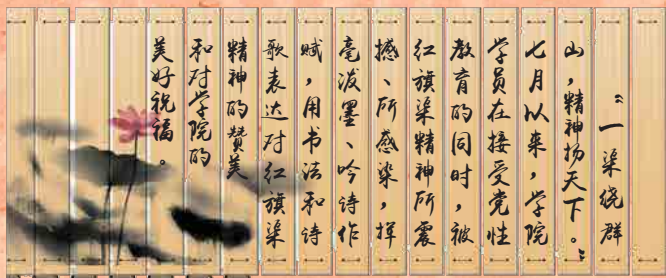 “一渠绕群
山，精神扬天下。”
七月以来，学院
学员在接受党性
教育的同时，被
红旗渠精神所震
撼、所感染，挥
毫泼墨、吟诗作
赋，用书法和诗
歌表达对红旗渠
精神的赞美
和对学院的
美好祝福。